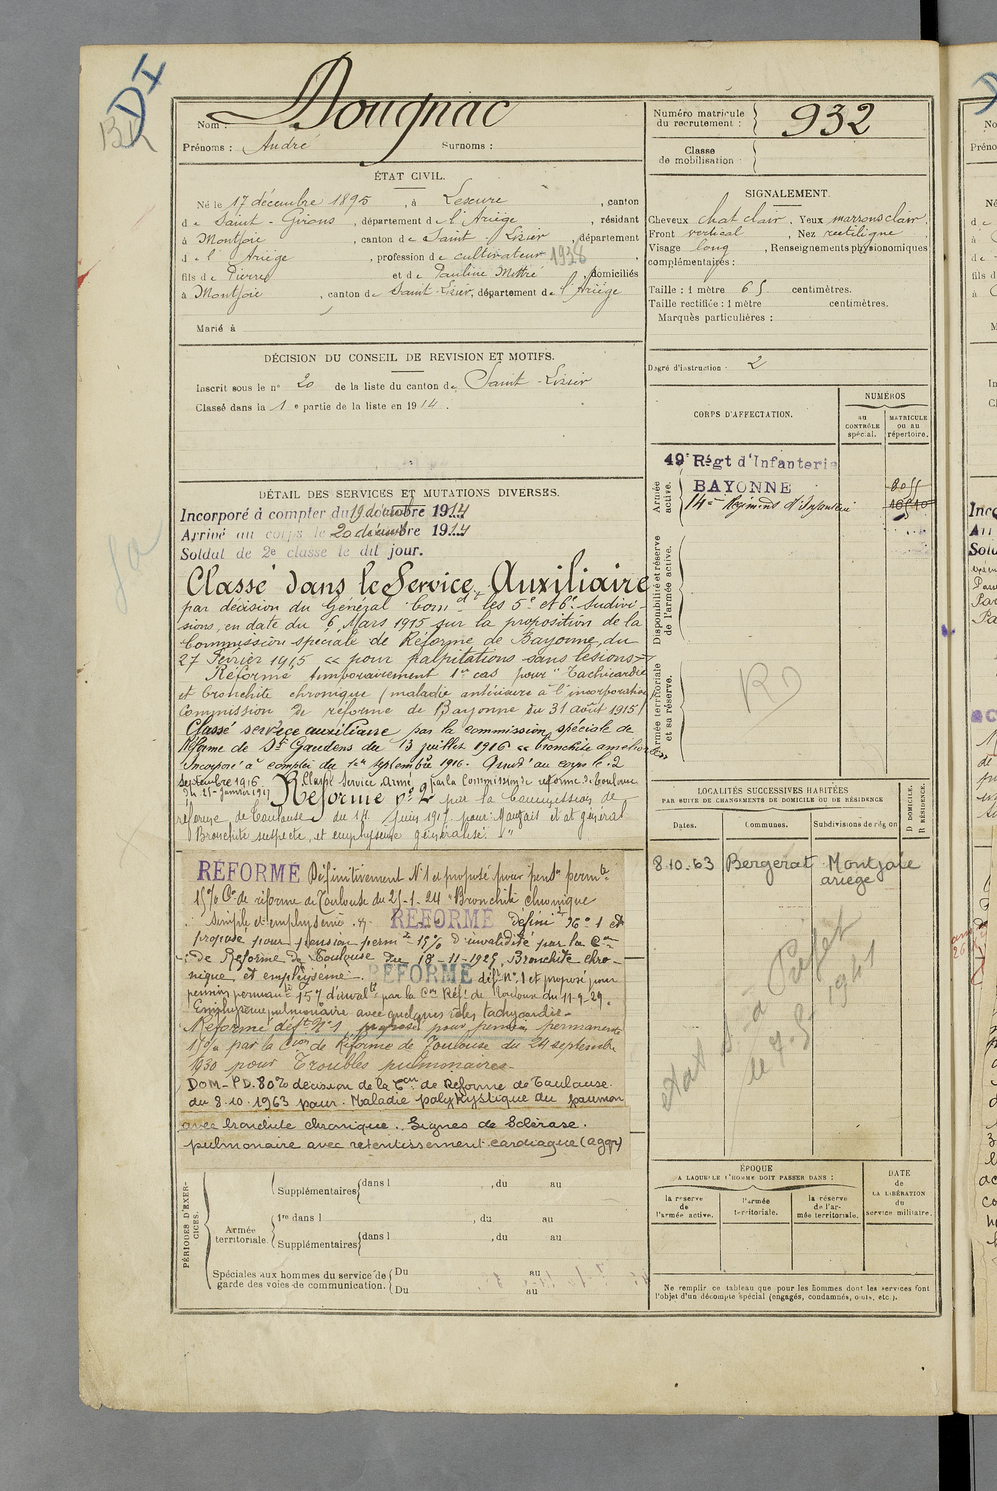 DI
BK
Nom : Dougnac
Prénoms : André Surnoms :
Numéro matricule du recrutement : 932
Classe de mobilisation :
ÉTAT CIVIL.
Né le 17 décembre 1895, à Lescure, canton
de Saint-Girons, département de l'Ariège, résidant
à Montjoie, canton de Saint-Lizier, département
de l'Ariège, profession de cultivateur 1938
fils de Pierre et de Pauline Mettré, domiciliés
à Montjoie, canton de Saint-Lizier, département de l'Ariège
Marié à
SIGNALEMENT.
Cheveux chat clair. Yeux marrons clair.
Front vertical, Nez rectiligne
Visage long, Renseignements physionomiques
complémentaires :
Taille : 1 mètre 65 centimètres.
Taille rectifiée : 1 mètre centimètres.
Marques particulières :
Degré d'instruction : 2
DÉCISION DU CONSEIL DE REVISION ET MOTIFS.
Inscrit sous le n° 20 de la liste du canton de Saint-Lizier
Classé dans la 1e partie de la liste en 1914.
CORPS D'AFFECTATION.
NUMÉROS
AU CONTRÔLE spécial.
MATRICULE ou au répertoire.
Armée active.
49e Régt d'Infanterie
BAYONNE
14e Régiment d'Infanterie
Disponibilité et réserve de l'armée active.
Armée territoriale et sa réserve.
RD
DÉTAIL DES SERVICES ET MUTATIONS DIVERSES.
Incorporé à compter du 19 décembre 1914
Arrivé au corps le 20 décembre 1914
Soldat de 2e classe le dit jour.
Classé dans le Service Auxiliaire
par décision du Général Comdt les 5e et 6e Subdivi-
sions, en date du 6 Mars 1915 sur la proposition de la
Commission spéciale de Réforme de Bayonne, du
27 Février 1915 « pour palpitations sans lésions »
Réformé temporairement 1er cas pour "Tachicardie
et bronchite chronique (maladie antérieure à l'incorporation)
Commission de réforme de Bayonne du 31 août 1915
Classé service auxiliaire par la commission spéciale de
Réforme de St Gaudens du 13 juillet 1916 « bronchite améliorée »
Incorporé à compter du 1er septembre 1916. Arrivé au corps le 2
septembre 1916 Classé Service Armé par la Commission de réforme de Toulouse
du 25 Janvier 1917 Réformé n° 2 par la Commission de
réforme de Toulouse du 14 Juin 1917 pour: Mauvais état général
Bronchite suspecte, et emphysème généralisé."
RÉFORMÉ Définitivement N° 1 et proposé pour pension permte
15% Con de réforme de Toulouse du 25-1-24 "Bronchite chronique
simple et emphysème. RÉFORMÉ définit N° 1 et
proposé pour pension permte 15% d'invalidité par la Con
de Réforme de Toulouse du 18-11-1925, Bronchite chro-
nique et emphysème. RÉFORMÉ déft N° 1 et proposé pour
pension permante 15% d'invalté par la Con Réf. de Toulouse du 11-9-29.
Emphysème pulmonaire avec quelques râles tachycardie-
Réformé déft N° 1, proposé pour pension permanente
15% par la Con de Réforme de Toulouse du 24 septembre
1930 pour Troubles pulmonaires-
DOM-PD. 80% décision de la Con de Réforme de Toulouse.
du 8.10.1963 pour. Maladie polyKystique du poumon
avec bronchite chronique. Signes de Sclérose.
pulmonaire avec retentissement cardiaque (aggr)
LOCALITÉS SUCCESSIVES HABITÉES
PAR SUITE DE CHANGEMENTS DE DOMICILE OU DE RÉSIDENCE
Dates. Communes. Subdivisions de région D DOMICILE. R RÉSIDENCE.
8.10.63 Bergerat Montjoie
ariege
état à Préfet
le 7.5.1941
PÉRIODES D'EXERCICES.
Supplémentaires dans l , du au
Armée territoriale.
1re dans l , du au
Supplémentaires dans l , du au
Spéciales aux hommes du service de garde des voies de communication.
Du au
Du au
ÉPOQUE
A LAQUELLE L'HOMME DOIT PASSER DANS :
la réserve de l'armée active.
l'armée territoriale.
la réserve de l'armée territoriale.
DATE de LA LIBÉRATION du service militaire.
Ne remplir ce tableau que pour les hommes dont les services font
l'objet d'un décompte spécial (engagés, condamnés, omis, etc.).